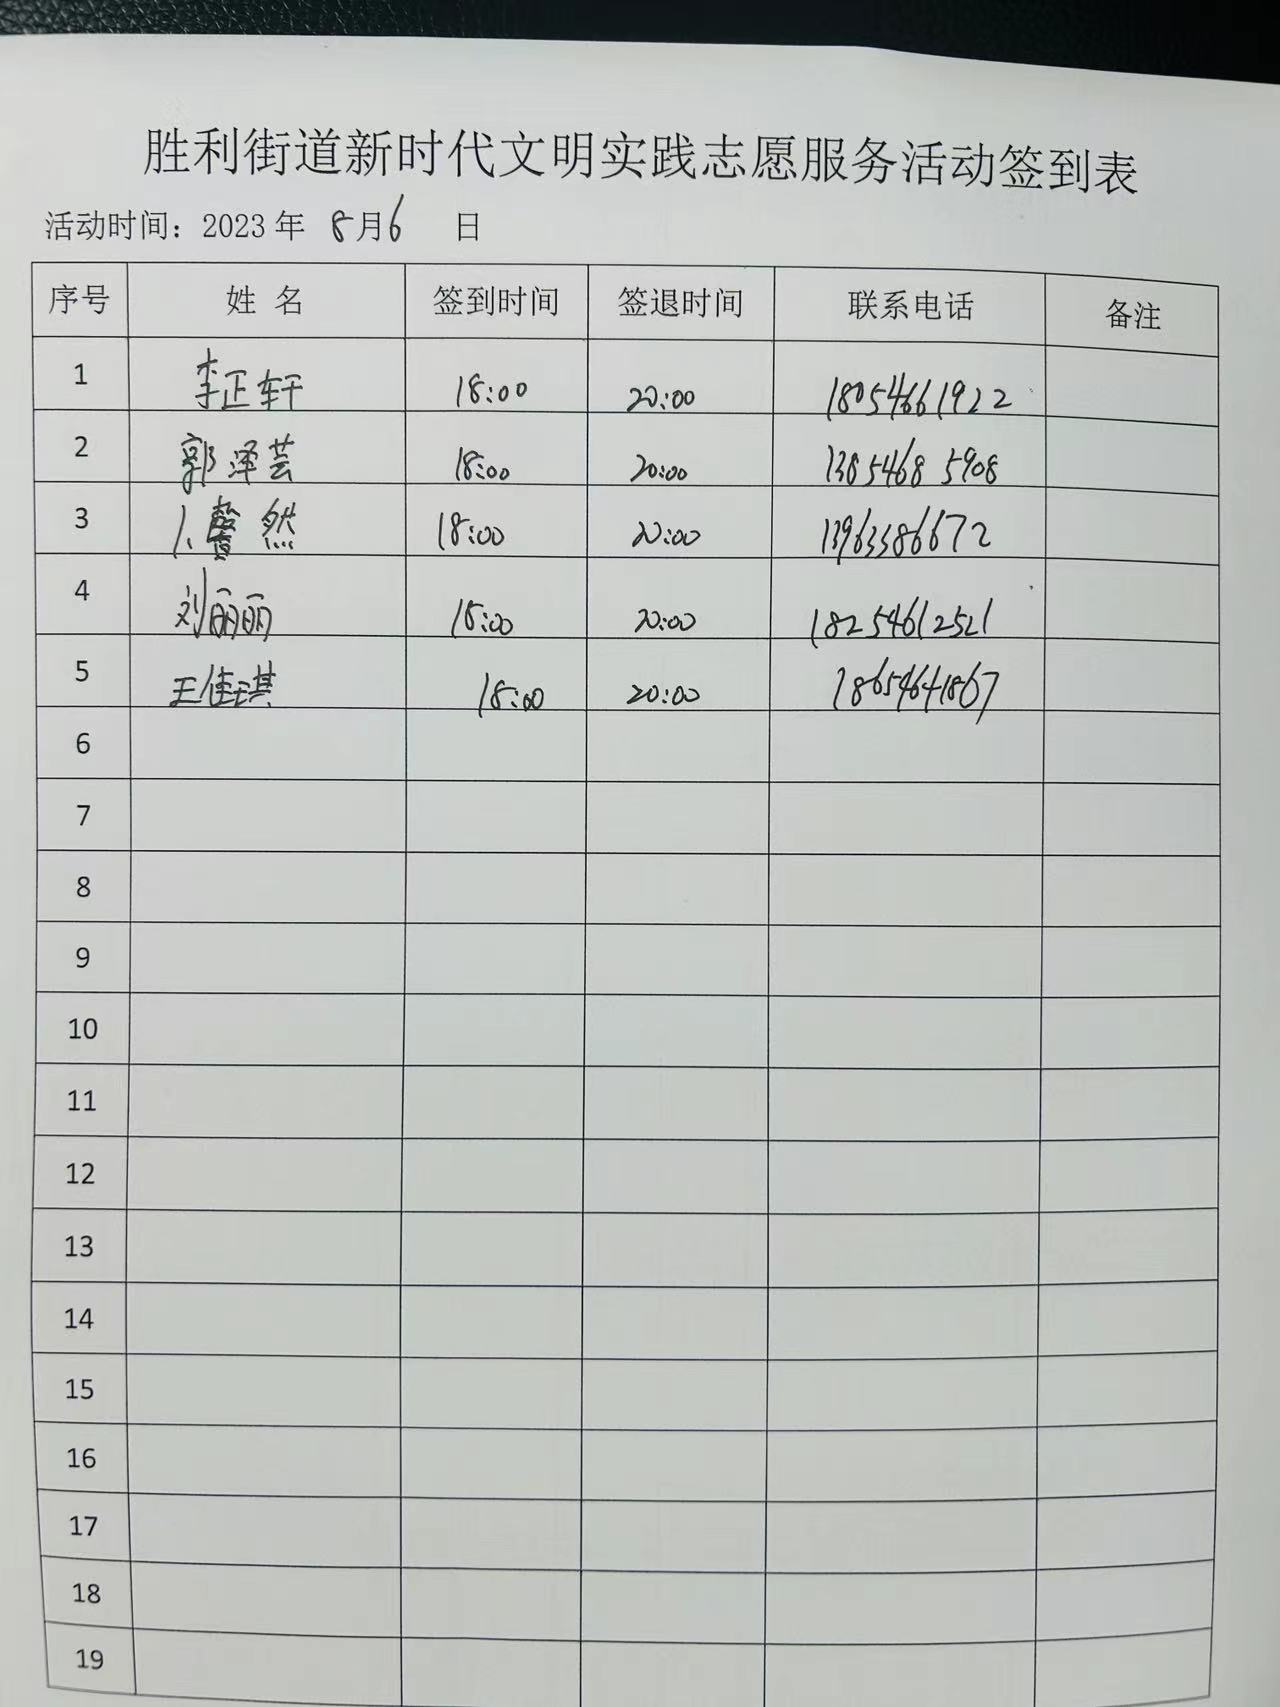 胜利街道新时代文明实践志愿服务活动签到表
活动时间：2023 年 8月6 日
序号 姓 名 签到时间 签退时间 联系电话 备注
1 李正轩 18:00 20:00 18054661922
2 郭泽芸 18:00 20:00 13854685908
3 卜馨然 18:00 20:00 13963386672
4 刘丽丽 18:00 20:00 18254612521
5 王佳琪 18:00 20:00 18654641867
6
7
8
9
10
11
12
13
14
15
16
17
18
19